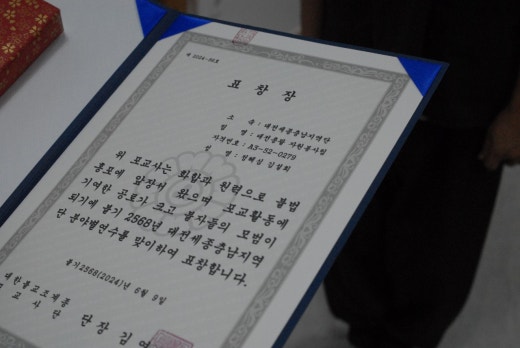 제 2024-
표 창 장
소 속 : 대전세종충남지역단
팀 명 : 대전총괄 자원봉사팀
자격번호 : A3-52-0279
성 명 :
위 포교사는 화합과 원력으로 불법
홍포에 앞장서 왔으며 포교활동에
기여한 공로가 크고 불자들의 모범이
되기에 불기 2568년 대전세종충남지역
단 분야별연수를 맞이하여 표창합니다.
불기2568(2024)년 6월 9일
대한불교조계종
포교사단
단장 김